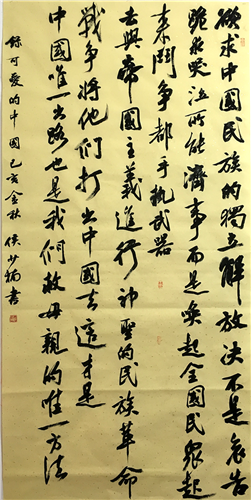 欲求中国民族的獨立解放决不是哀告
跪求哭泣所能濟事而是唤起全國民眾起
来鬥争都手执武器
去與帝國主義進行神聖的民族革命
戰争将他们打出中國去這才是
中國唯一出路也是我們救母親的唯一方法
錄可爱的中國己亥金秋侯少
書